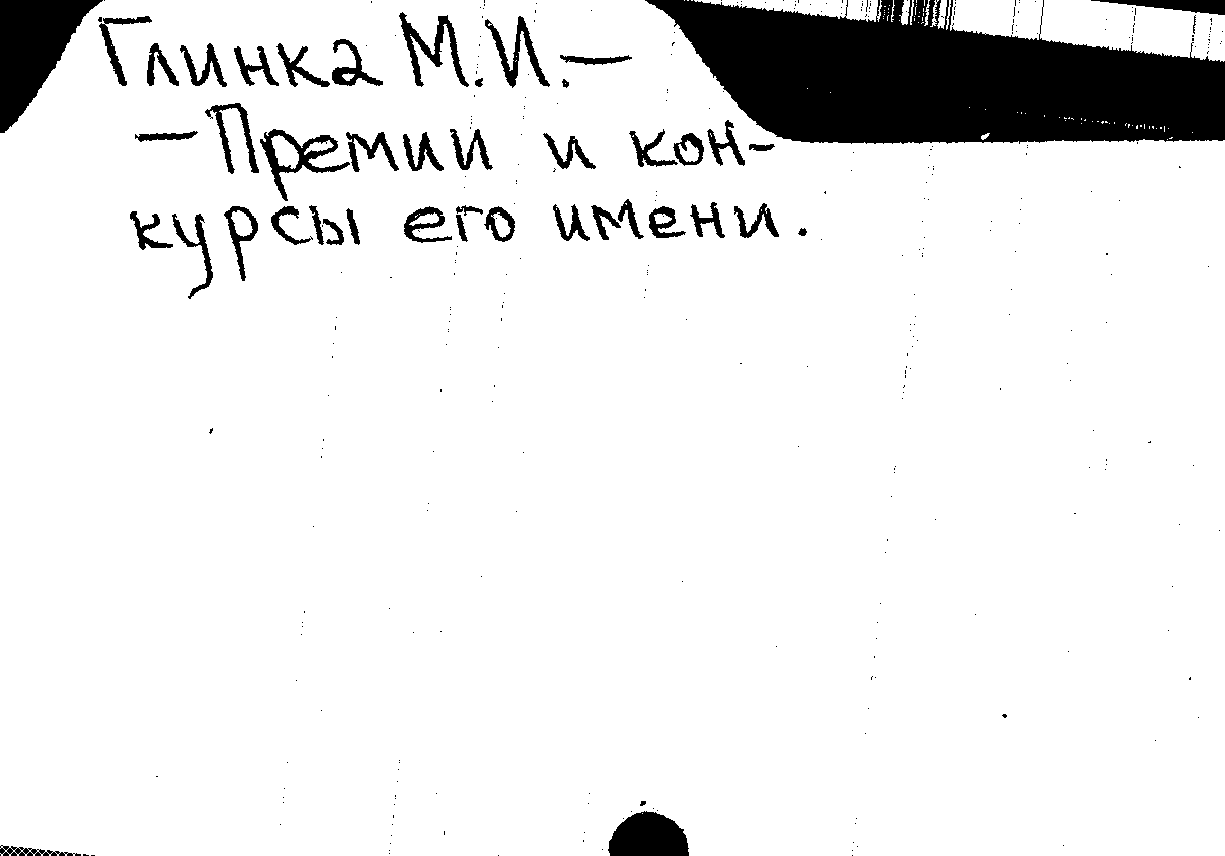 Глинка М.И.—
—Премии и кон-
курсы его имени.